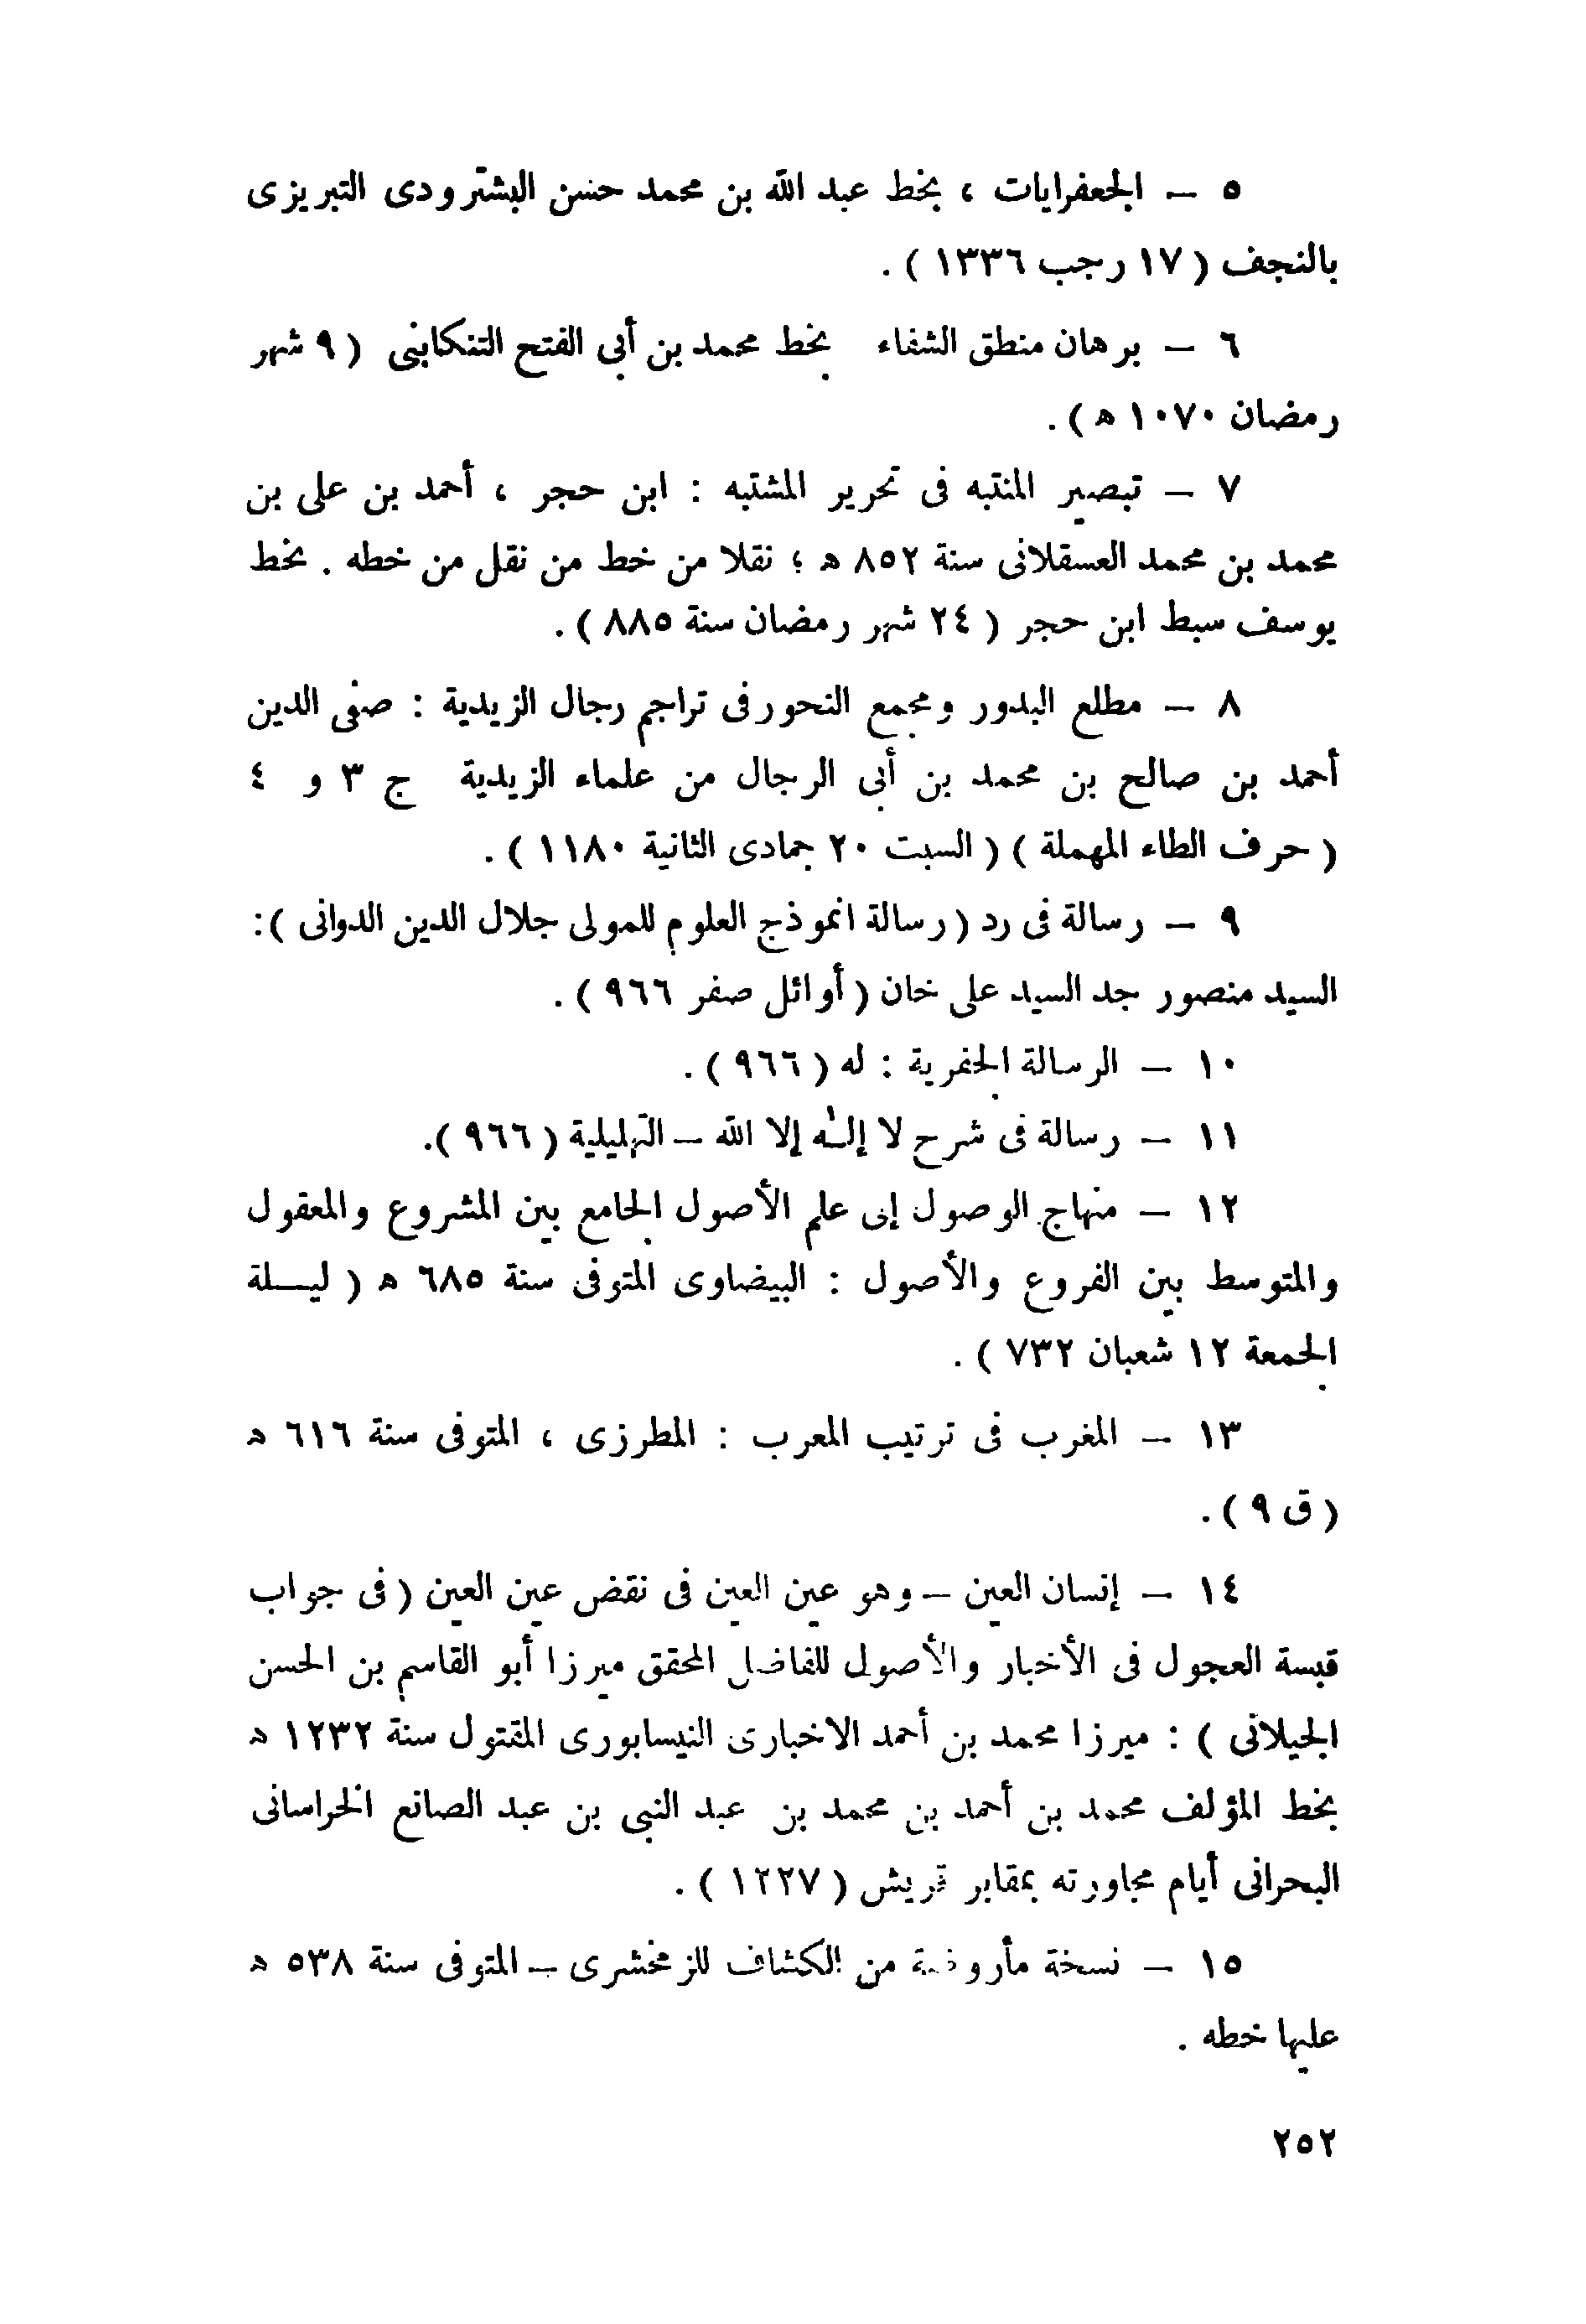 ٥ — الجعفرايات ، بخط عبد الله بن محمد حسن البشترودى التبريزى
بالنجف ( ١٧ رجب ١٣٣٦ ) .
٦ — برهان منطق الشفاء بخط محمد بن أبى الفتح التنكابنى ( ٩ شهر
رمضان ١٠٧٠ ه ) .
٧ — تبصير المنتبه فى تحرير المشتبه : ابن حجر ، أحمد بن على بن
محمد بن محمد العسقلانى سنة ٨٥٢ ه ؛ نقلا من خط من نقل من خطه . بخط
يوسف سبط ابن حجر ( ٢٤ شهر رمضان سنة ٨٨٥ ) .
٨ — مطلع البدور ومجمع النحور فى تراجم رجال الزيدية : صفى الدين
أحمد بن صالح بن محمد بن أبى الرجال من علماء الزيدية ج ٣ و ٤
( حرف الطاء المهملة ) ( السبت ٢٠ جمادى الثانية ١١٨٠ ) .
٩ — رسالة فى رد ( رسالة انموذج العلوم للمولى جلال الدين الدوانى ) :
السيد منصور جد السيد على خان ( أوائل صفر ٩٦٦ ) .
١٠ — الرسالة الجفرية : له ( ٩٦٦ ) .
١١ — رسالة فى شرح لا إلٰه إلا الله — التهليلية ( ٩٦٦ ) .
١٢ — منهاج الوصول إلى علم الأصول الجامع بين المشروع والمعقول
والمتوسط بين الفروع والأصول : البيضاوى المتوفى سنة ٦٨٥ ه ( ليـــلة
الجمعة ١٢ شعبان ٧٣٢ ) .
١٣ — المغرب فى ترتيب المعرب : المطرزى ، المتوفى سنة ٦١٦ ه
( ق ٩ ) .
١٤ — إنسان العين — وهو عين العين فى نقض عين العين ( فى جواب
قبسة العجول فى الأخبار والأصول للفاضل المحقق ميرزا أبو القاسم بن الحسن
الجيلانى ) : ميرزا محمد بن أحمد الاخبارى النيسابورى المقتول سنة ١٢٣٢ ه
بخط المؤلف محمد بن أحمد بن محمد بن عبد النبى بن عبد الصانع الخراسانى
البحرانى أيام مجاورته بمقابر قريش ( ١٢٢٧ ) .
١٥ — نسخة مأروضة من الكشاف للزمخشرى — المتوفى سنة ٥٣٨ ه
عليها خطه .
٢٥٢